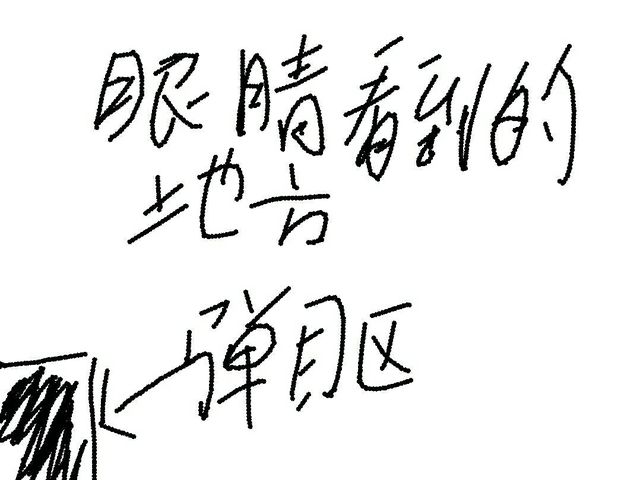 眼睛看到的
地方
弹目区